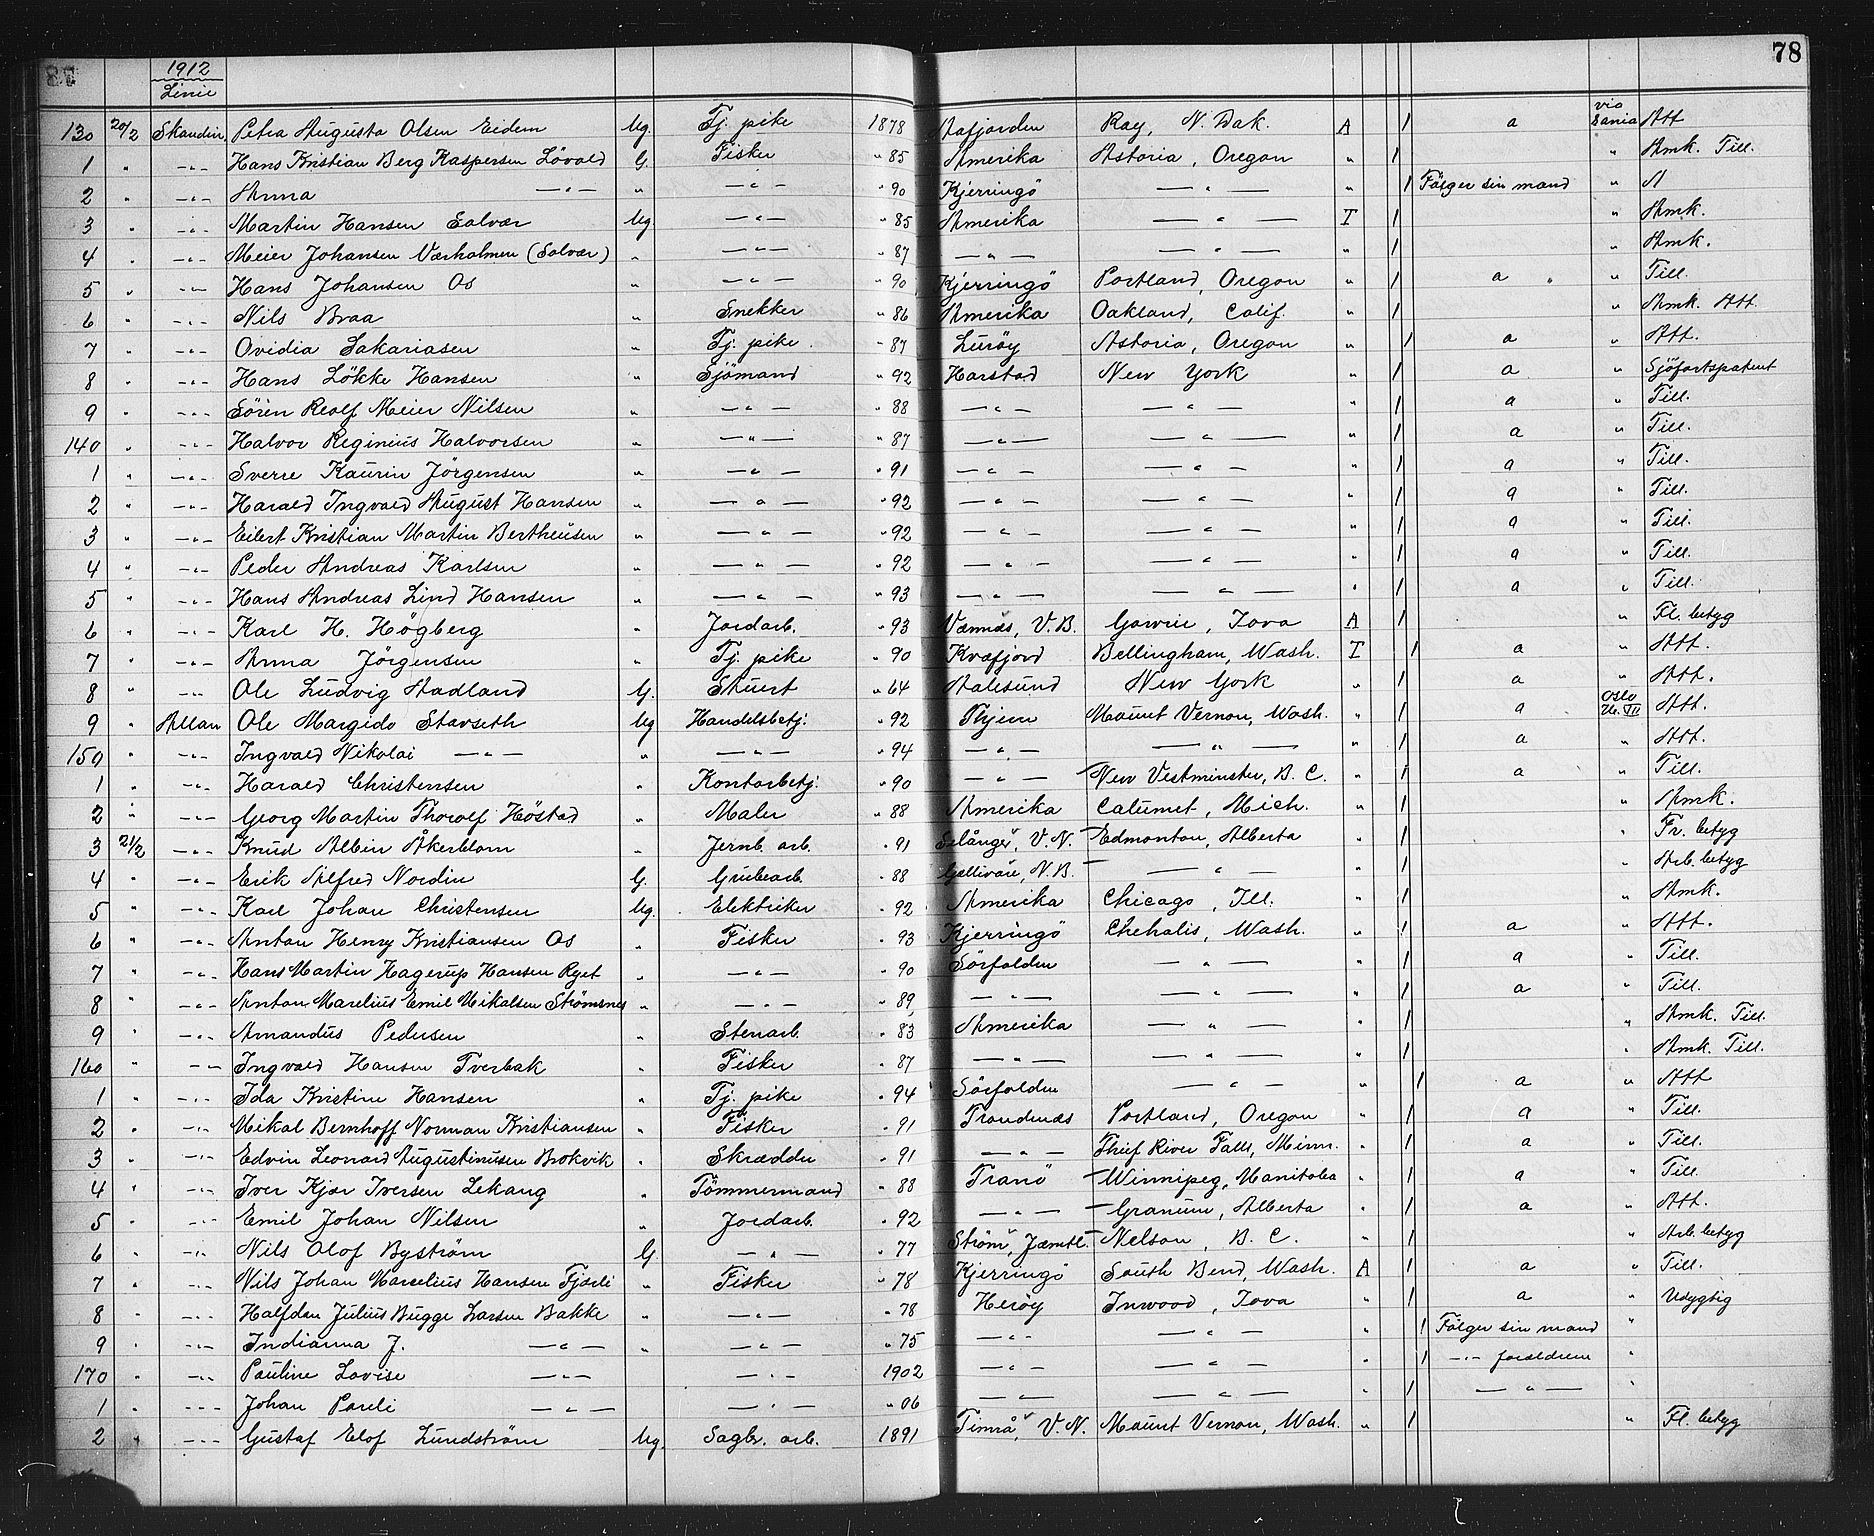 78
1912
Linie
130 20/2 Skandin. Petra Augusta Olsen Eidem Ug. Tj. pike 1878 Aafjorden Ray, N. Dak. A 1 a via Dania Att
1 " -"- Hans Kristian Berg Kaspersen Lövold G. Fisker " 85 Amerika Astoria, Oregon " 1 " Amk. Till.
2 " -"- Anna -"- " -"- " 90 Kjerringö -"- " 1 Fölger sin mand " A
3 " -"- Martin Hansen Salvær Ug -"- " 85 Amerika -"- T 1 " Amk.
4 " -"- Meier Johansen Værholmen (Salvær) " -"- " 87 -"- -"- " 1 " Amk.
5 " -"- Hans Johansen Os " -"- " 90 Kjerringö Portland, Oregon " 1 a " " Till.
6 " -"- Nils Braa " Snekker " 86 Amerika Oakland, Calif. " 1 " Amk. Att.
7 " -"- Ovidia Sakariasen " Tj. pike " 87 Luröy Astoria, Oregon " 1 a " Att.
8 " -"- Hans Lökke Hansen " Sjömand " 92 Harstad New York " 1 a " Sjöfartspatent
9 " -"- Sören Rolf Meier Nilsen " -"- " 88 -"- -"- " 1 a " Till.
140 " -"- Halvor Reginius Halvorsen " -"- " 87 -"- -"- " 1 a " Till.
1 " -"- Sverre Kaurin Jörgensen " -"- " 91 -"- -"- " 1 a " Till.
2 " -"- Harald Ingvald August Hansen " -"- " 92 -"- -"- " 1 a " Till.
3 " -"- Eilert Kristian Martin Bertheusen " -"- " 92 -"- -"- " 1 a " Till.
4 " -"- Peder Andreas Karlsen " -"- " 92 -"- -"- " 1 a " Till.
5 " -"- Hans Andreas Lind Hansen " -"- " 93 -"- -"- " 1 a " Till.
6 " -"- Karl H. Högberg " Jordarb. " 93 Vännäs, V.B. Gowrie, Iova A 1 " Fl. betyg
7 " -"- Anna Jörgensen " Tj. pike " 90 Kvæfjord Bellingham, Wash. T 1 a " Att.
8 " -"- Ole Ludvig Aadland G. Stuert " 64 Aalesund New York " 1 a " Att.
9 " Allan Ole Margido Stavseth Ug Handelsbetj. " 92 Thjem Mount Vernon, Wash. " 1 a Oslo Att.
150 " -"- Ingvald Nikolai -"- " -"- " 94 -"- -"- " 1 a " Att.
1 " -"- Harald Christensen " Kontorbetj. " 90 -"- New Vestminster, B. C. " 1 a " Till.
2 " -"- Georg Martin Thorolf Höstad " Maler " 88 Amerika Calumet, Mich. " 1 " Amk.
3 21/2 -"- Knud Albin Åkerblom " Jernb. arb. " 91 Selånger, V. N. Edmonton, Alberta " 1 " Fr. betyg
4 " -"- Erik Alfred Nordin G. Grubearb. " 88 Gellivare, N.B. -"- " 1 " Arb. betyg
5 " -"- Karl Johan Christensen Ug. Elektriker " 92 Amerika Chicago, Ill. " 1 " Amk.
6 " -"- Anton Henry Kristiansen Os " Fisker " 93 Kjerringö Chehalis, Wash. " 1 a " Att.
7 " -"- Hans Martin Hagerup Hansen Ryet " -"- " 90 Sörfolden -"- " 1 a " Till.
8 " -"- Anton Marelius Emil Mikalsen Strömsnes " -"- " 89 -"- -"- " 1 a " Till.
9 " -"- Amandus Pedersen " Stenarb. " 83 Amerika -"- " 1 " Amk. Till.
160 " -"- Ingvald Hansen Tverbak " Fisker " 87 -"- -"- " 1 " Amk. Till.
1 " -"- Ida Kristine Hansen " Tj. pike " 94 Sörfolden -"- " 1 a " Att
2 " -"- Mikal Bernhoff Norman Kristiansen " Fisker " 91 Trondenæs Portland, Oregon " 1 a " Till.
3 " -"- Edvin Leonard Augustinusen Brokvik " Skrædder " 91 -"- Thief River Falls, Minn. " 1 a " Till.
4 " -"- Iver Kjær Iversen Lekang " Tömmermand " 88 Tranö Winnipeg, Manitoba " 1 a " Till.
5 " -"- Emil Johan Nilsen " Jordarb. " 92 -"- Granum, Alberta " 1 a " Att.
6 " -"- Nils Olof Byström G. -"- " 77 Ström, Jæmtl. Nelson, B. C. " 1 " Arb. betyg
7 " -"- Nils Johan Marcelius Hansen Fjærli " Fisker " 78 Kjerringö South Bend, Wash. A 1 a " Till.
8 " -"- Halfdan Julius Bugge Larsen Bakke " -"- " 78 Heröy Inwood, Iova " 1 a " Udygtig
9 " -"- Indianna J. -"- " -"- " 75 -"- -"- " 1 Fölger sin mand "
170 " -"- Pauline Lovise -"- -"- 1902 -"- -"- " 1 -"- forældrene "
1 " -"- Johan Pareli -"- -"- " 06 -"- -"- " 1 -"- "
2 " -"- Gustaf Elof Lundström Ug. Sagbr. arb. 1891 Timrå, V. N. Mount Vernon, Wash. " 1 " Fl. betyg